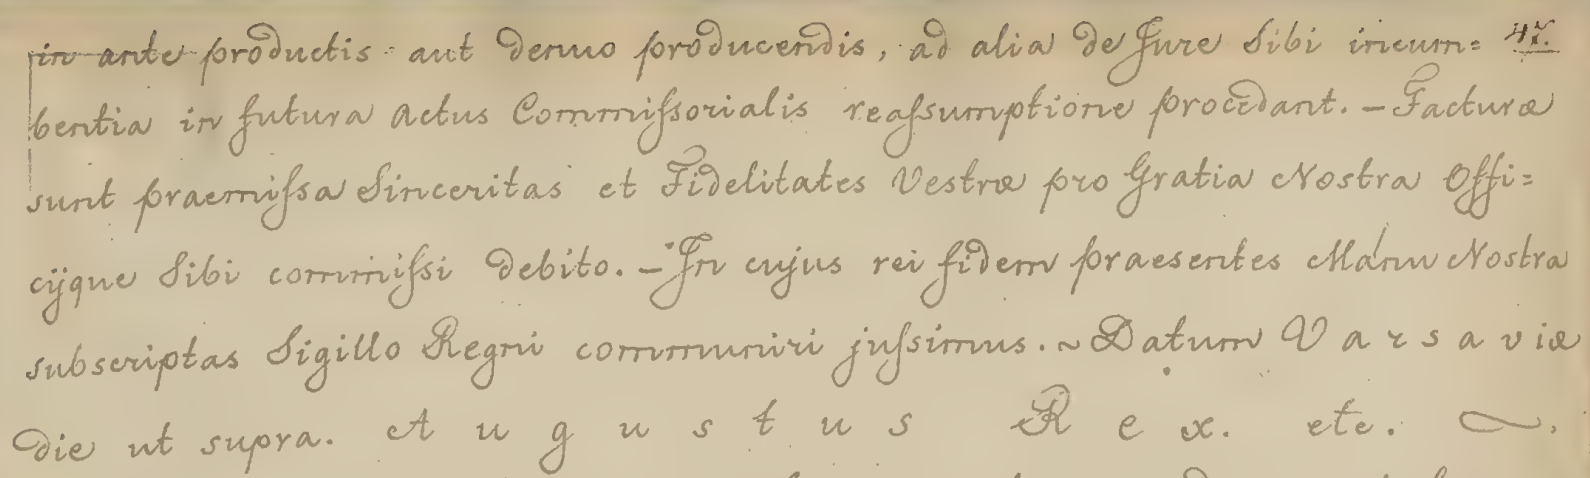 in ante productis aut denuo producendis, ad alia de Jure Sibi incum= 47.
bentia in futura Actus Commiſsorialis reaſsumptione procedant. – Facturæ
sunt praemiſsa Sinceritas et Fidelitates Vestræ pro Gratia Nostra Offi=
cijque Sibi commiſsi debito. – In cujus rei fidem praesentes Manu Nostra
subscriptas Sigillo Regni communiri juſsimus. ~ Datum Varsaviæ
die ut supra. Augustus Rex. etc.